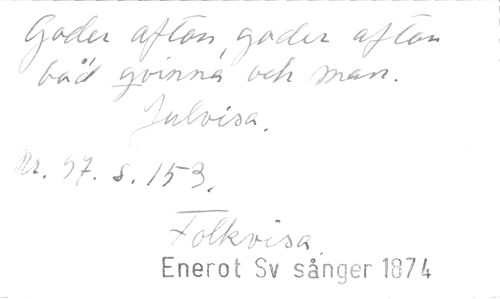 Goder afton, goder afton
båd qvinna och man.
Julvisa.
Nr. 97. s. 153.
Folkvisa.
Enerot Sv sånger 1874